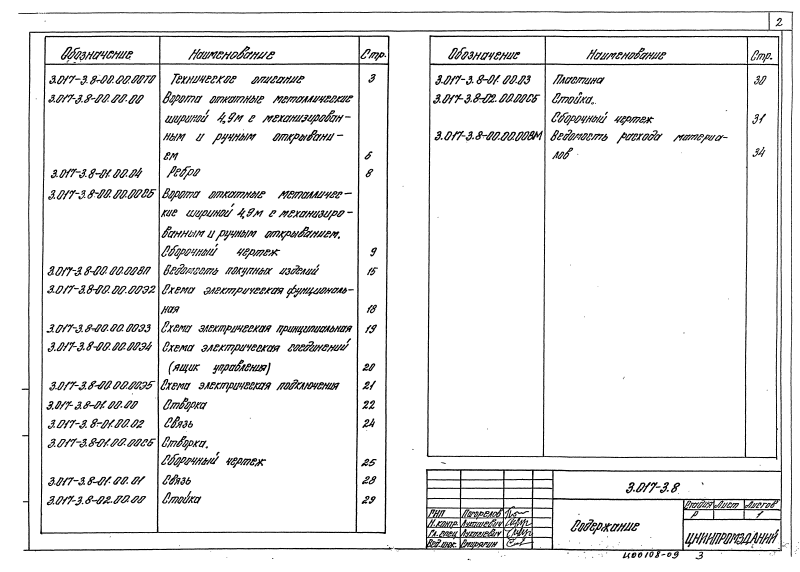 2
Обозначение Наименование Стр.
3.017-3.8-00.00.00ТО Техническое описание 3
3.017-3.8-00.00.00 Ворота откатные металлические
шириной 4,9м с механизирован-
ным и ручным открывани-
ем 6
3.017-3.8-01.00.04 Ребро 8
3.017-3.8-00.00.00СБ Ворота откатные металличес-
кие шириной 4,9м с механизиро-
ванным и ручным открыванием.
Сборочный чертеж 9
3.017-3.8-00.00.00ВП Ведомость покупных изделий 15
3.017-3.8-00.00.00Э2 Схема электрическая функциональ-
ная 18
3.017-3.8-00.00.00Э3 Схема электрическая принципиальная 19
3.017-3.8-00.00.00Э4 Схема электрическая соединений
(ящик управления) 20
3.017-3.8-00.00.00Э5 Схема электрическая подключения 21
3.017-3.8-01.00.00 Створка 22
3.017-3.8-01.00.02 Связь 24
3.017-3.8-01.00.00СБ Створка.
Сборочный чертеж 25
3.017-3.8-01.00.01 Связь 28
3.017-3.8-02.00.00 Стойка 29
Обозначение Наименование Стр.
3.017-3.8-01.00.03 Пластина 30
3.017-3.8-02.00.00СБ Стойка.
Сборочный чертеж 31
3.017-3.8-00.00.00ВМ Ведомость расхода материа-
лов 34
3.017-3.8
Содержание
Стадия Лист Листов
Р 1
ЦНИИПРОМЗДАНИЙ
ГИП Погорелов
Н.контр. Лукашевич
Гл. спец. Лукашевич
Вед.инж. Смирягин
Ц00108-09 3